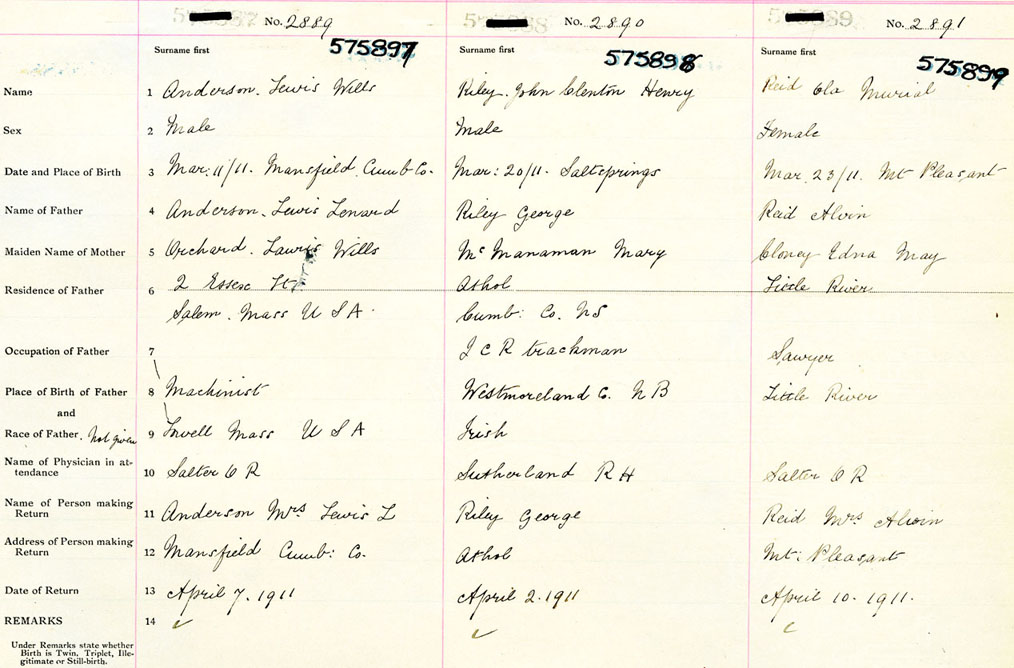 No. 2889
No. 2890
No. 2891
575897
575898
575899
Surname first
Surname first
Surname first
Name
1 Anderson. Lewis Wills
Riley. John Clenton Henry
Reid Ela Murial
Sex
2 Male
Male
Female
Date and Place of Birth
3 Mar: 11/11. Mansfield Cumb Co.
Mar: 20/11. Saltsprings
Mar. 23/11. Mt Pleasant
Name of Father
4 Anderson. Lewis Lenard
Riley George
Reid Alvin
Maiden Name of Mother
5 Orchard. Wills
McManaman Mary
Cloney Edna May
Residence of Father
6 2 Essex St
Athol
Little River
Salem. Mass U S A.
Cumb: Co. NS
Occupation of Father
7
I C R trackman
Sawyer
Place of Birth of Father
8 Machinist
Westmoreland Co. N B
Little River
and
Race of Father. Not given
9 Lowell Mass U S A
Irish
Name of Physician in at-
tendance
10 Salter O R
Sutherland R H
Salter O R
Name of Person making
Return
11 Anderson Mrs Lewis L
Riley George
Reid Mrs Alvin
Address of Person making
Return
12 Mansfield Cumb: Co.
Athol
Mt: Pleasant
Date of Return
13 April 7. 1911
April 2. 1911
April 10. 1911.
REMARKS
14
Under Remarks state whether
Birth is Twin, Triplet, Ille-
gitimate or Still-birth.